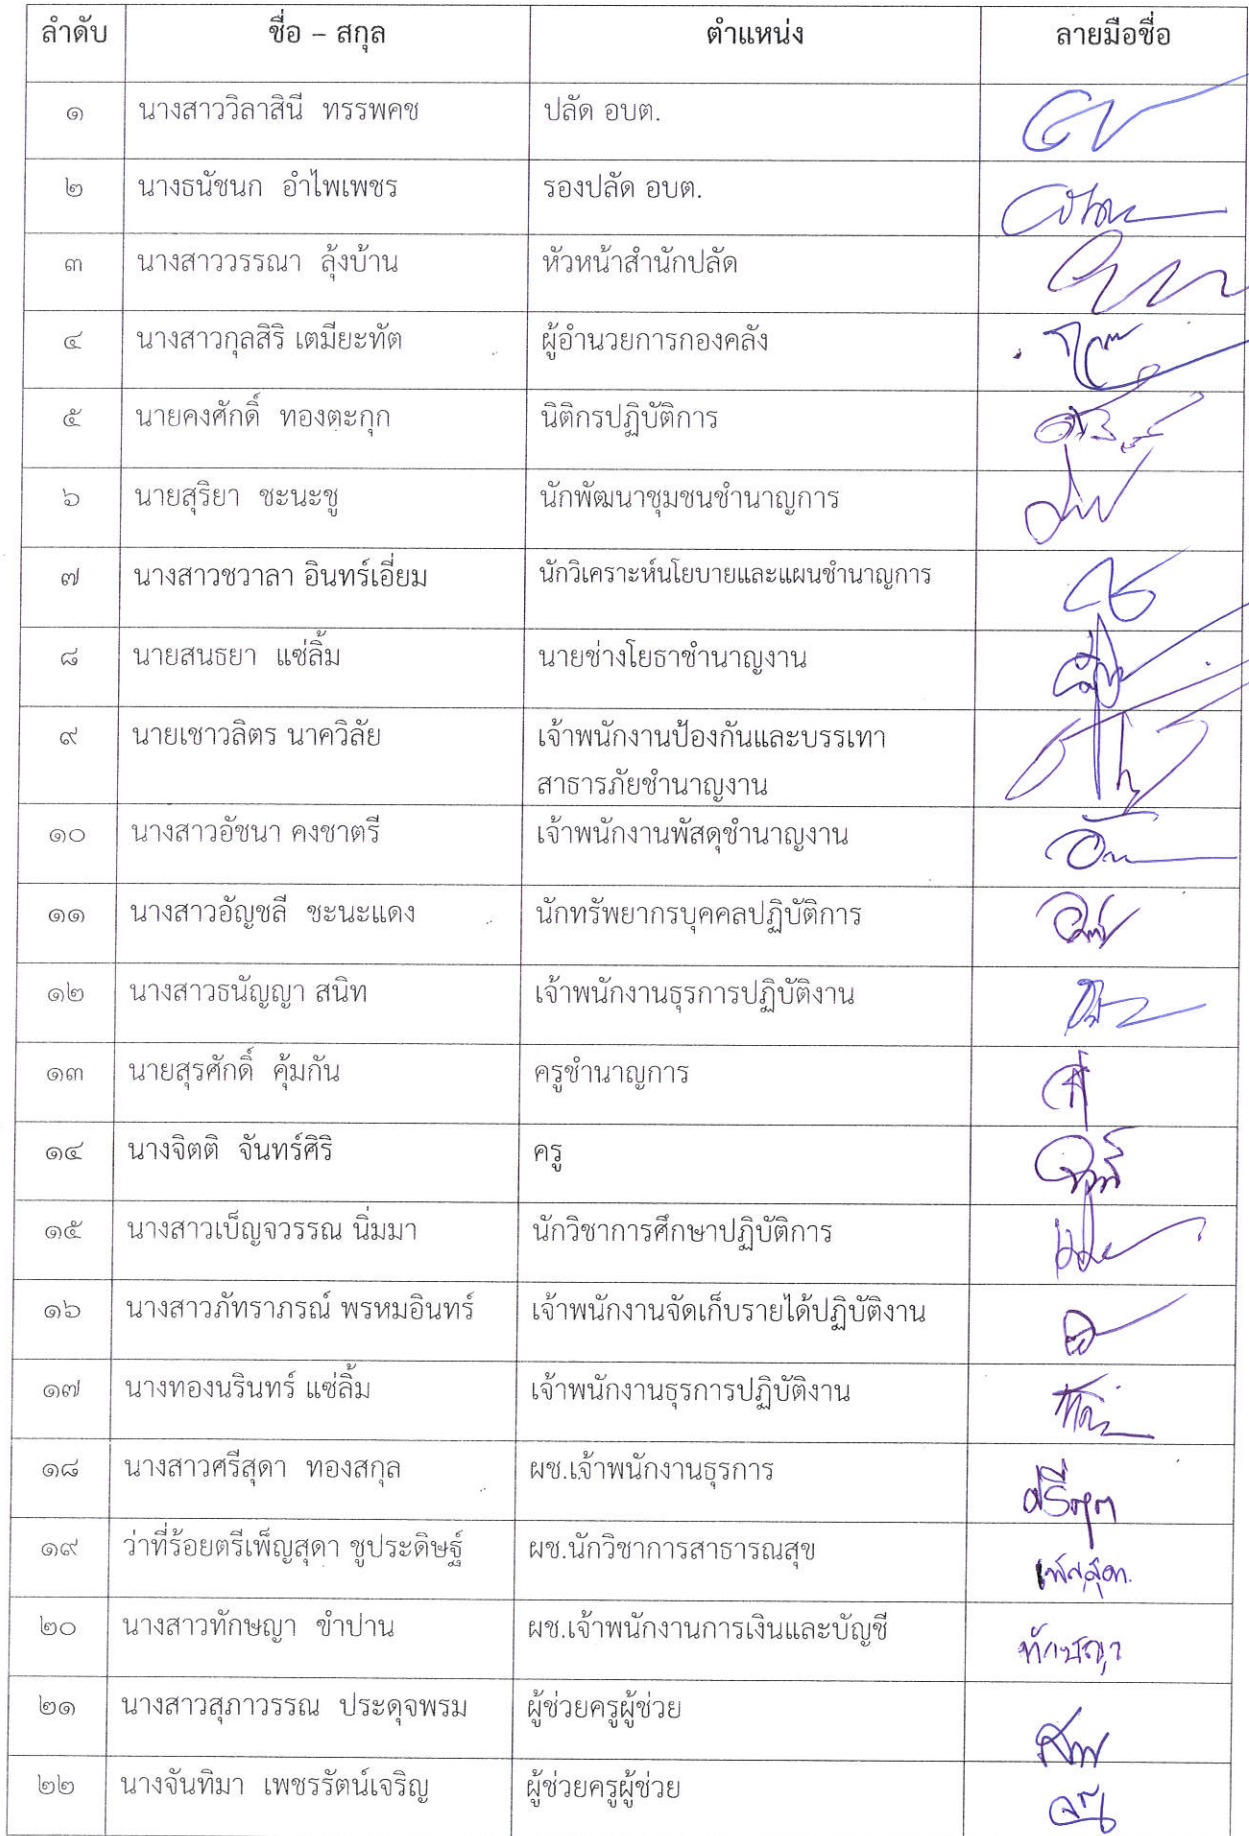 ลำดับ ชื่อ – สกุล ตำแหน่ง ลายมือชื่อ
๑ นางสาววิลาสินี ทรรพคช ปลัด อบต.
๒ นางธนัชนก อำไพเพชร รองปลัด อบต.
๓ นางสาววรรณา ลุ้งบ้าน หัวหน้าสำนักปลัด
๔ นางสาวกุลสิริ เตมียะทัต ผู้อำนวยการกองคลัง
๕ นายคงศักดิ์ ทองตะกุก นิติกรปฏิบัติการ
๖ นายสุริยา ชะนะชู นักพัฒนาชุมชนชำนาญการ
๗ นางสาวชวาลา อินทร์เอี่ยม นักวิเคราะห์นโยบายและแผนชำนาญการ
๘ นายสนธยา แซ่ลิ้ม นายช่างโยธาชำนาญงาน
๙ นายเชาวลิตร นาควิลัย เจ้าพนักงานป้องกันและบรรเทา
สาธารภัยชำนาญงาน
๑๐ นางสาวอัชนา คงชาตรี เจ้าพนักงานพัสดุชำนาญงาน
๑๑ นางสาวอัญชลี ชะนะแดง นักทรัพยากรบุคคลปฏิบัติการ
๑๒ นางสาวธนัญญา สนิท เจ้าพนักงานธุรการปฏิบัติงาน
๑๓ นายสุรศักดิ์ คุ้มกัน ครูชำนาญการ
๑๔ นางจิตติ จันทร์ศิริ ครู
๑๕ นางสาวเบ็ญจวรรณ นิ่มมา นักวิชาการศึกษาปฏิบัติการ
๑๖ นางสาวภัทราภรณ์ พรหมอินทร์ เจ้าพนักงานจัดเก็บรายได้ปฏิบัติงาน
๑๗ นางทองนรินทร์ แซ่ลิ้ม เจ้าพนักงานธุรการปฏิบัติงาน
๑๘ นางสาวศรีสุดา ทองสกุล ผช.เจ้าพนักงานธุรการ ศรีสุดา
๑๙ ว่าที่ร้อยตรีเพ็ญสุดา ชูประดิษฐ์ ผช.นักวิชาการสาธารณสุข เพ็ญสุดา.
๒๐ นางสาวทักษญา ขำปาน ผช.เจ้าพนักงานการเงินและบัญชี ทักษญา
๒๑ นางสาวสุภาวรรณ ประดุจพรม ผู้ช่วยครูผู้ช่วย
๒๒ นางจันทิมา เพชรรัตน์เจริญ ผู้ช่วยครูผู้ช่วย